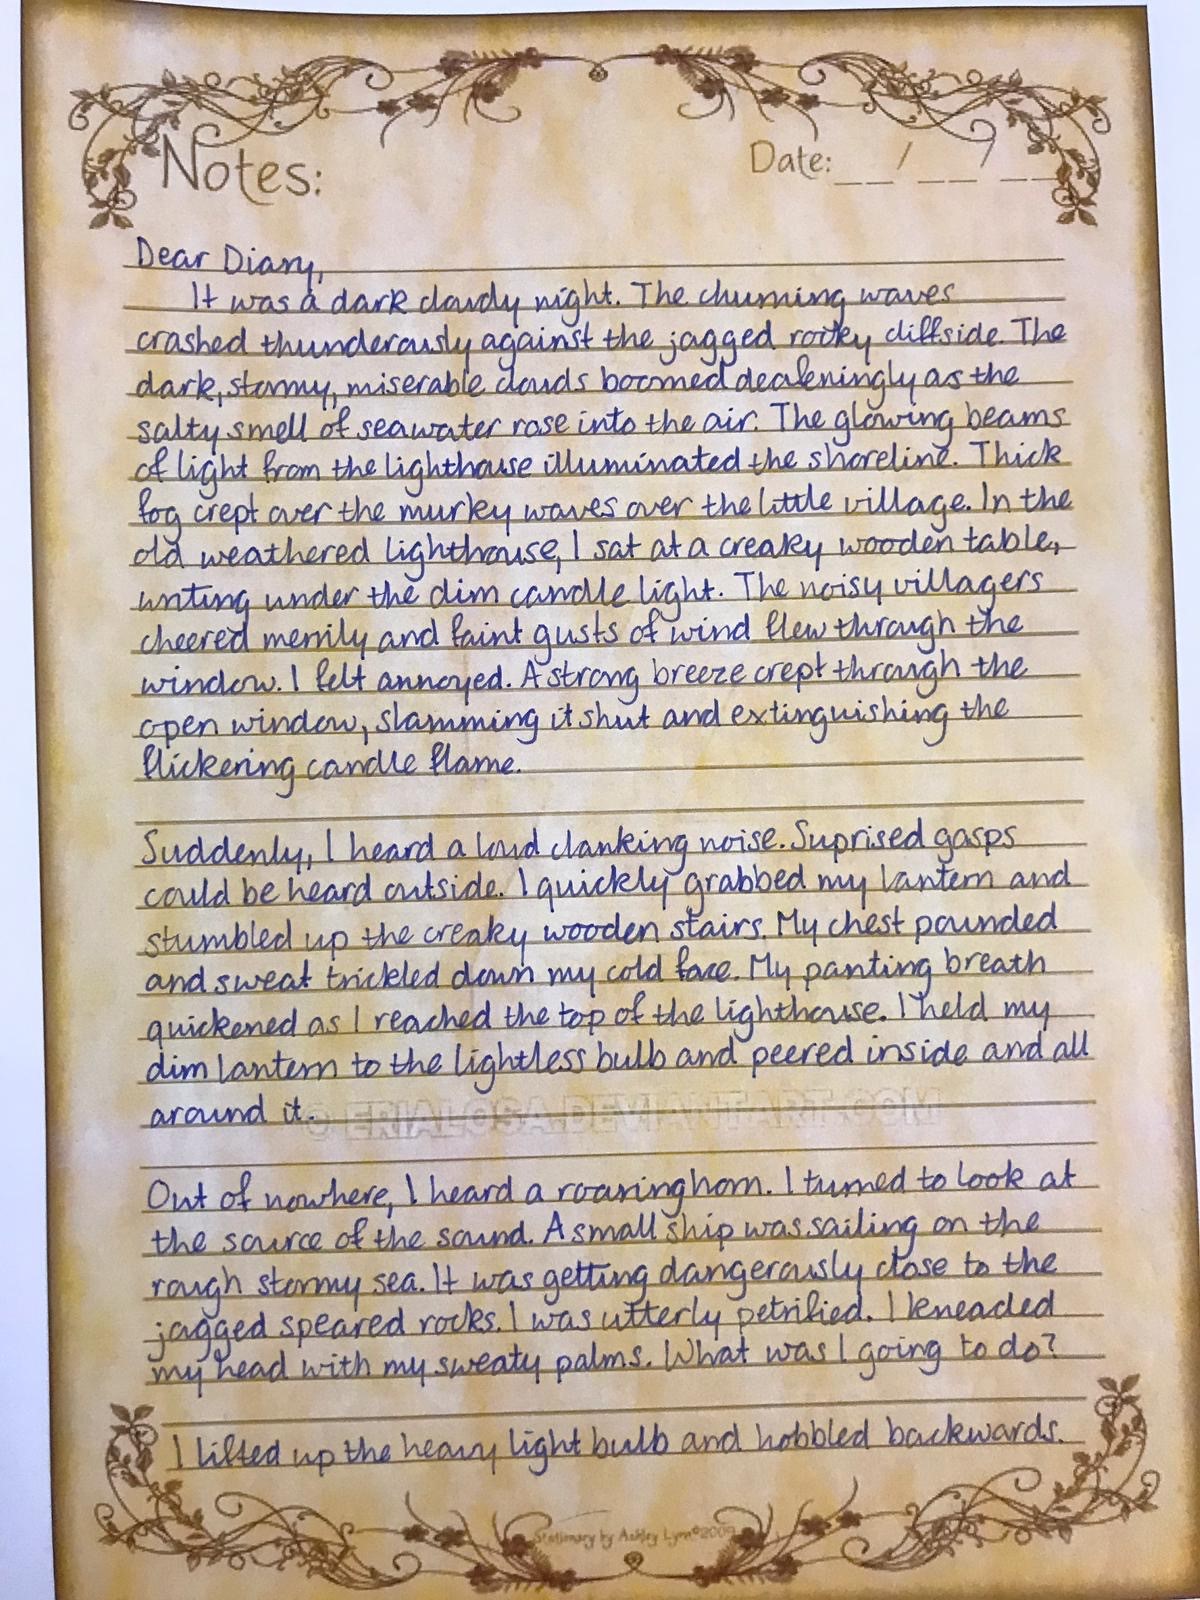 Notes:
Date: __ / __ / __
Dear Diary,
It was a dark cloudy night. The churning waves
crashed thunderously against the jagged rocky cliffside. The
dark, stormy, miserable clouds boomed deafeningly as the
salty smell of seawater rose into the air. The glowing beams
of light from the lighthouse illuminated the shoreline. Thick
fog crept over the murky waves over the little village. In the
old weathered lighthouse, I sat at a creaky wooden table,
writing under the dim candle light. The noisy villagers
cheered merrily and faint gusts of wind flew through the
window. I felt annoyed. A strong breeze crept through the
open window, slamming it shut and extinguishing the
flickering candle flame.
Suddenly, I heard a loud clanking noise. Suprised gasps
could be heard outside. I quickly grabbed my lantern and
stumbled up the creaky wooden stairs. My chest pounded
and sweat trickled down my cold face. My panting breath
quickened as I reached the top of the lighthouse. I held my
dim lantern to the lightless bulb and peered inside and all
around it.
© ERIALOSA.DEVIANTART.COM
Out of nowhere, I heard a roaring horn. I turned to look at
the source of the sound. A small ship was sailing on the
rough stormy sea. It was getting dangerously close to the
jagged speared rocks. I was utterly petrified. I kneaded
my head with my sweaty palms. What was I going to do?
I lifted up the heavy light bulb and hobbled backwards.
Stationary by Ashley Lynn©2009